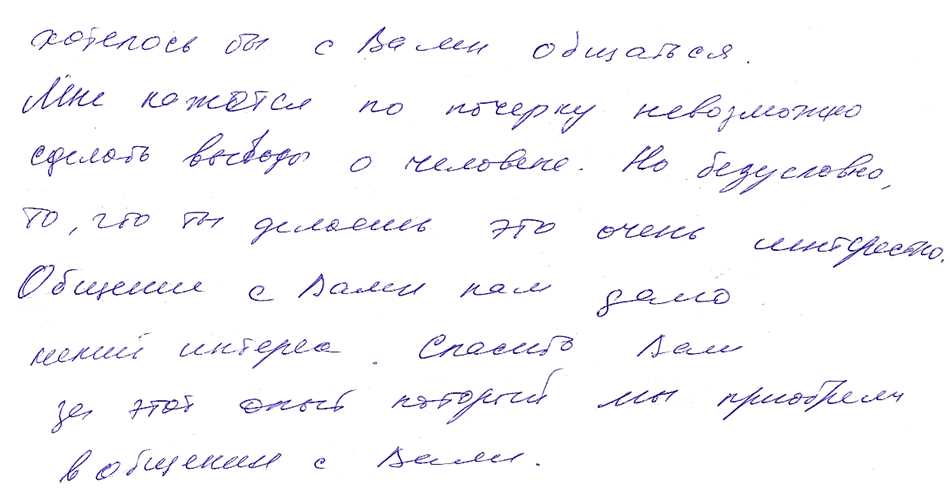 хотелось бы с Вами общаться.
Мне кажется по почерку невозможно
сделать выводы о человеке. Но безусловно,
то, что ты делаешь это очень интересно.
Общение с Вами нам дало
некий интерес. Спасибо Вам
за этот опыт который мы приобрели
в общении с Вами.